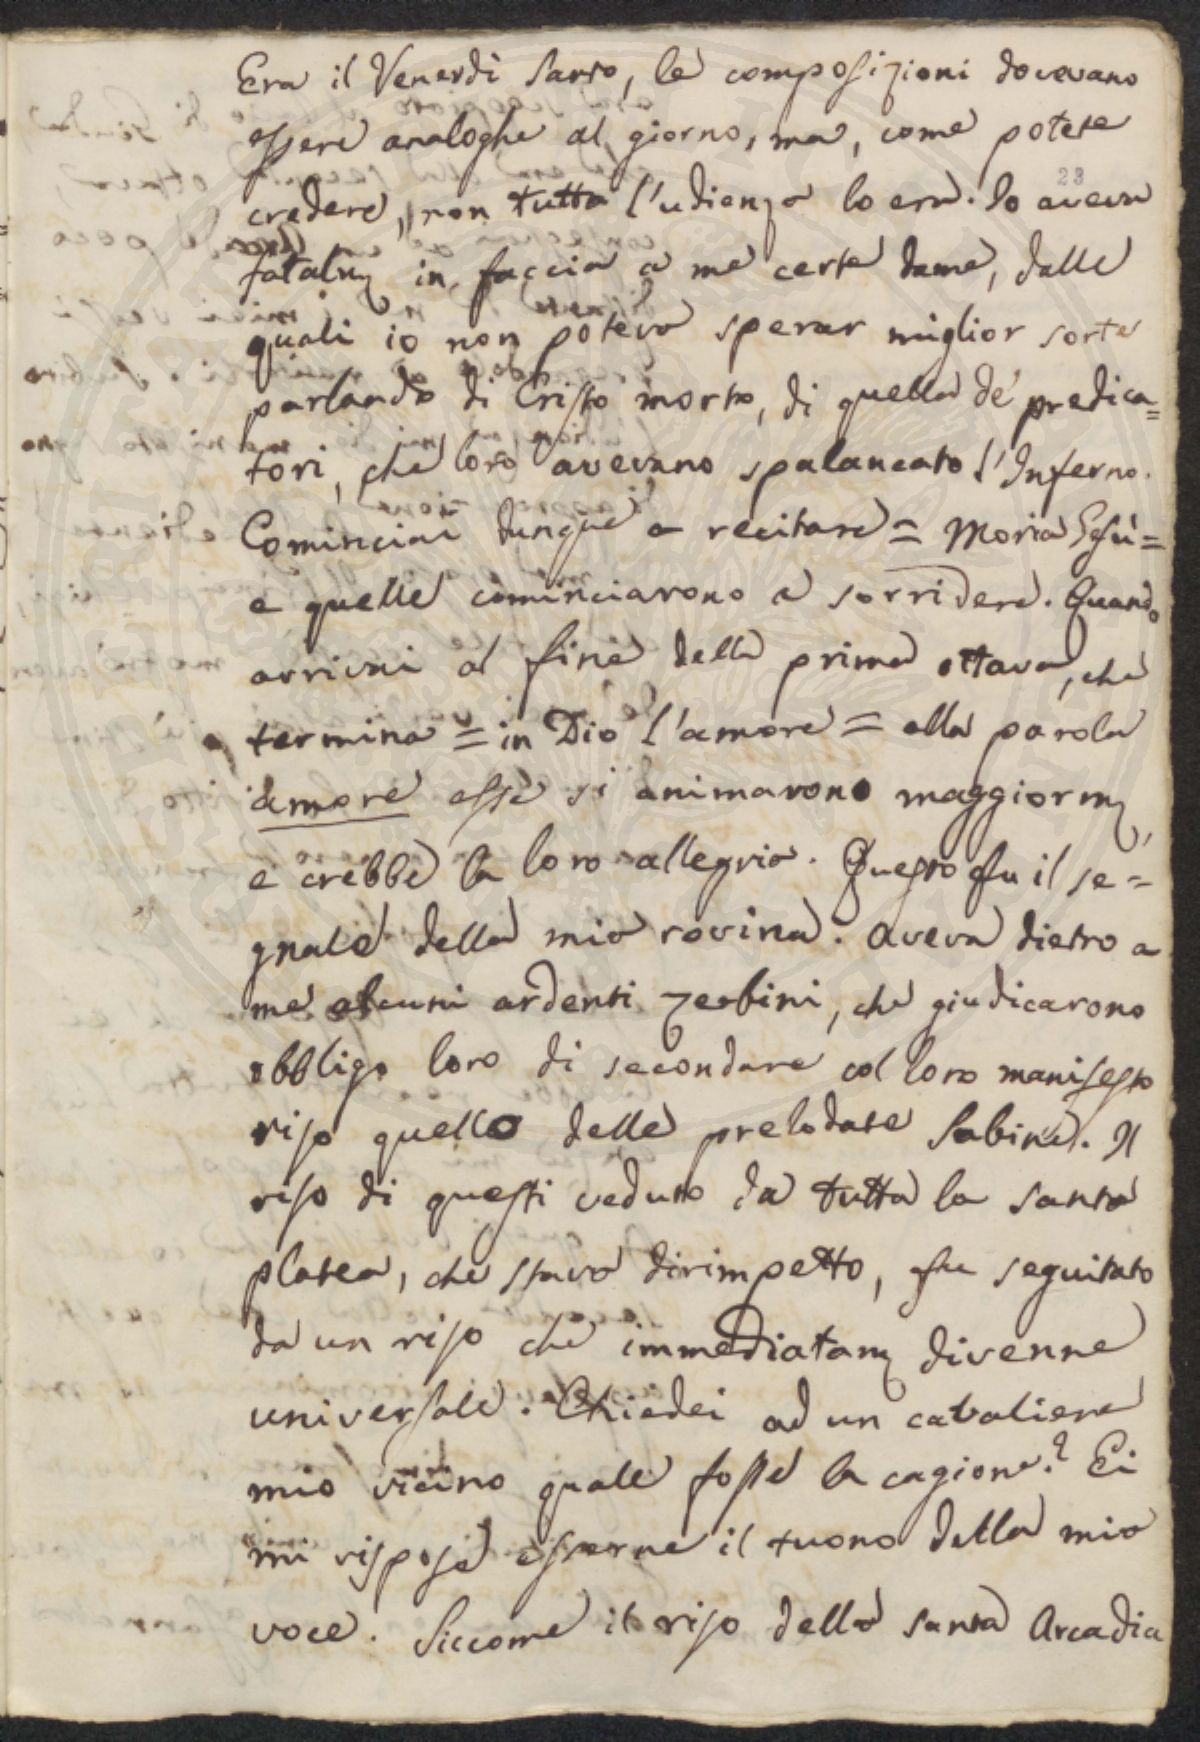 Era il Venerdì Santo, le composizioni dovevano
essere analoghe al giorno, ma, come potete
23
credere, non tutta l'udienza lo era. Io aveva
fatalm in faccia a me certe dame, dalle
quali io non poteva sperar miglior sorte
parlando di Cristo morto, di quella de' predica=
tori, che loro avevano spalancato l'Inferno.
Cominciai dunque a recitare = Moria Gesù =
e quelle cominciarono a sorridere. Quando
arrivai al fine della prima ottava, che
termina = in Dio l'amore = alla parola
amore esse si animarono maggiorm,
e crebbe la loro allegria. Questo fu il se=
gnale della mia rovina. Aveva dietro a
me alcuni ardenti zerbini, che giudicarono
obbligo loro di secondare col loro manifesto
riso quello delle prelodate Sabine. Il
riso di questi veduto da tutta la santa
platea, che stava dirimpetto, fu seguitato
da un riso che immediatam divenne
universale. Chiedei ad un cavaliere
mio vicino quale fosse la cagione? Ei
mi rispose esserne il tuono della mia
voce. Siccome il riso della santa Arcadia